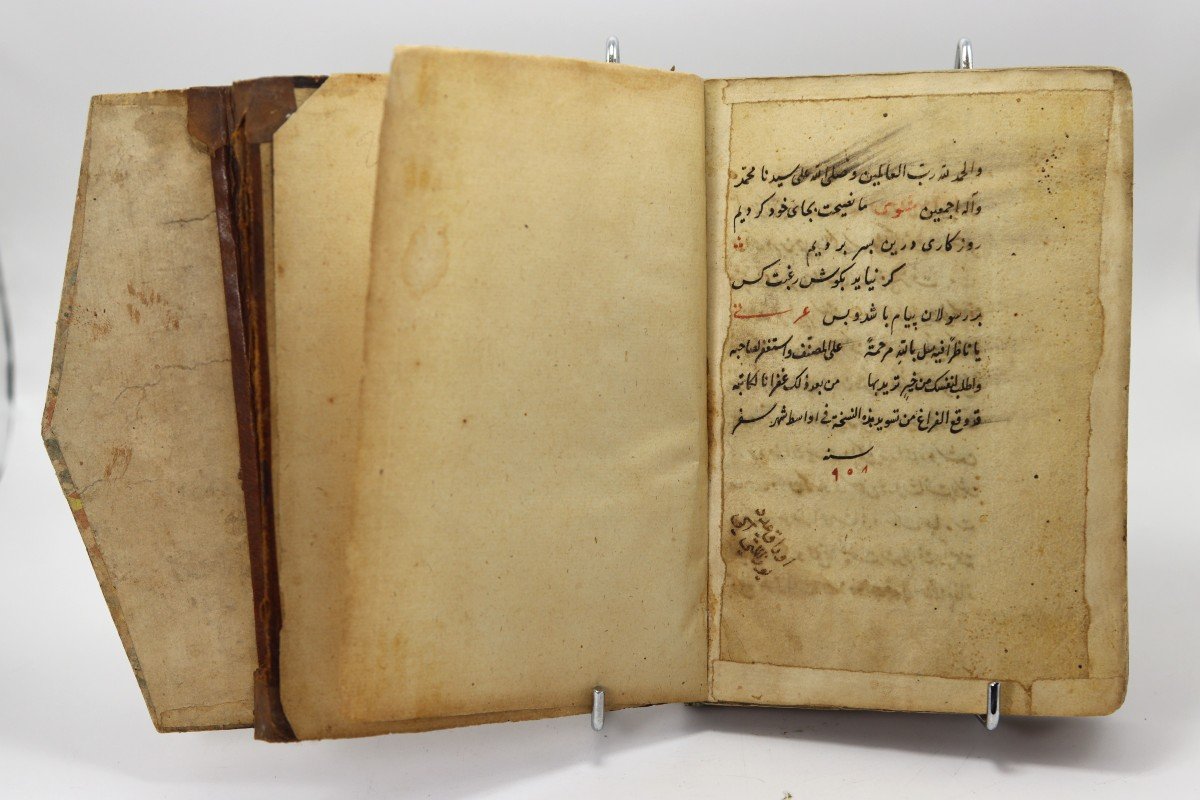 والحمد لله رب العالمین وصلی الله علی سیدنا محمد
وآله اجمعین مثنوی ما نصیحت بجای خود کردیم
روزکاری درین بسر بردیم
کر نیاید بکوش رغبت کس
بر رسولان پیام باشد وبس عربی
یا ناظرا فیه سل بالله مرحمة علی المصنف واستغفر لصاحبه
واطلب لنفسک من خیر ترید بها من بعد ذلک غفرانا لکاتبه
قد وقع الفراغ من تسوید هذه النسخة فی اواسط شهر سفر
سنه
۹۵۸